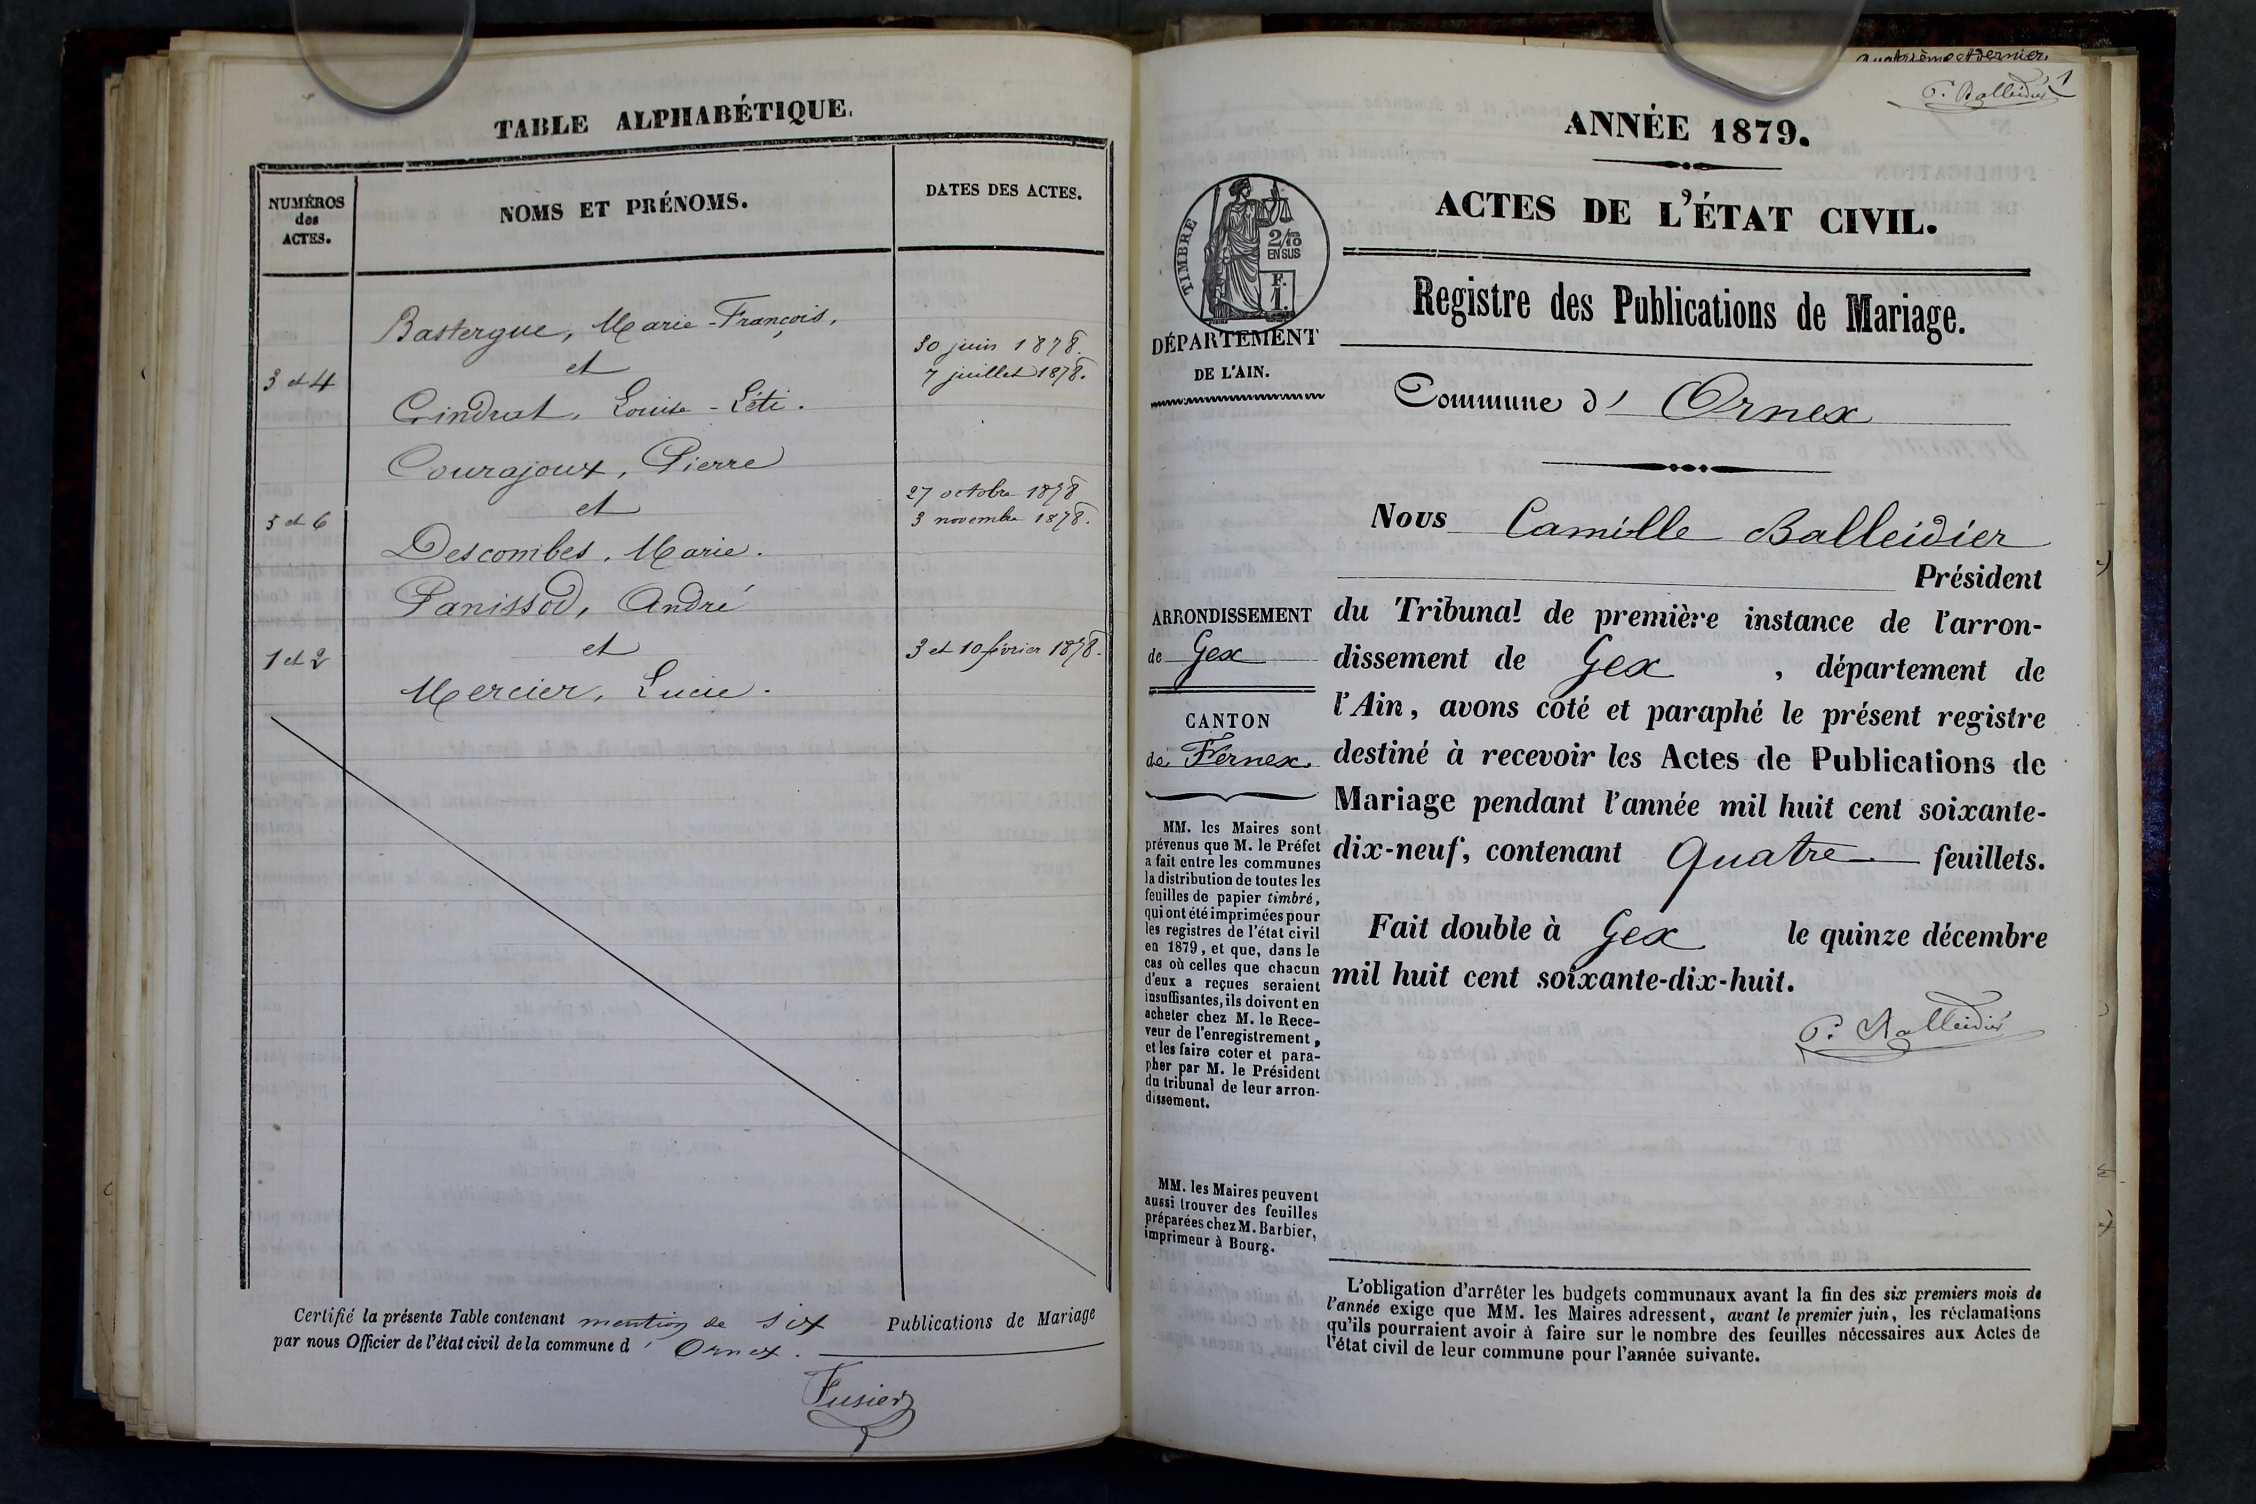 TABLE ALPHABÉTIQUE.
NUMÉROS
des
ACTES.
NOMS ET PRÉNOMS.
DATES DES ACTES.
Bastergue, Marie-François,
30 juin 1878.
et
3 et 4
7 juillet 1878.
Louise - Léti.
Courajoux, Pierre
27 octobre 1878
et
5 et 6
3 novembre 1878.
Descombes, Marie.
Panissod, André
et
1 et 2
3 et 10 février 1878.
Mercier, Lucie.
Certifié la présente Table contenant mention de six Publications de Mariage
par nous Officier de l'état civil de la commune d' Ornex.
Fusier
quatrième et dernier.
C. Balleidier
1
ANNÉE 1879.
ACTES DE L'ÉTAT CIVIL.
Registre des Publications de Mariage.
TIMBRE
2/10
EN SUS
F.
1.
DÉPARTEMENT
DE L'AIN.
Commune d' Ornex
Nous Camille Balleidier
Président
du Tribunal de première instance de l'arron-
dissement de Gex , département de
l'Ain, avons coté et paraphé le présent registre
destiné à recevoir les Actes de Publications de
Mariage pendant l'année mil huit cent soixante-
dix-neuf, contenant Quatre feuillets.
Fait double à Gex le quinze décembre
mil huit cent soixante-dix-huit.
C. Balleidier
ARRONDISSEMENT
de Gex
CANTON
de Fernex
MM. les Maires sont
prévenus que M. le Préfet
a fait entre les communes
la distribution de toutes les
feuilles de papier timbré,
qui ont été imprimées pour
les registres de l'état civil
en 1879, et que, dans le
cas où celles que chacun
d'eux a reçues seraient
insuffisantes, ils doivent en
acheter chez M. le Rece-
veur de l'enregistrement,
et les faire coter et para-
pher par M. le Président
du tribunal de leur arron-
dissement.
MM. les Maires peuvent
aussi trouver des feuilles
préparées chez M. Barbier,
imprimeur à Bourg.
L'obligation d'arrêter les budgets communaux avant la fin des six premiers mois de
l'année exige que MM. les Maires adressent, avant le premier juin, les réclamations
qu'ils pourraient avoir à faire sur le nombre des feuilles nécessaires aux Actes de
l'état civil de leur commune pour l'année suivante.